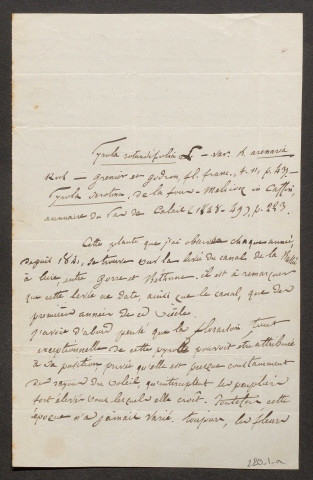 Pyrola rotundifolia L. - var. B arenaria
Koch - grenier et godron, fl. franc., t. II, p. 437 -
Pyrola serotina, de la fons-Melicocq in
annuaire du Pas de Calais (1848-49), p. 223.
Cette plante que j'ai observée chaque année
depuis 1841, se trouve sur la levée du canal de la Bassée
à Aire, entre Gorre et Béthune, il est à remarquer
que cette levée ne date, ainsi que le canal, que des
premières années de ce siècle.
J'avois d'abord pensé que la floraison tout
exceptionnelle de cette pyrole pouvoit être attribuée
à sa position, privée qu'elle est presque constamment
de rayons du soleil, qu'interceptent les peupliers
fort élevés sous lesquels elle croit. Toutefois cette
époque n'a jamais varié. toujours, les fleurs